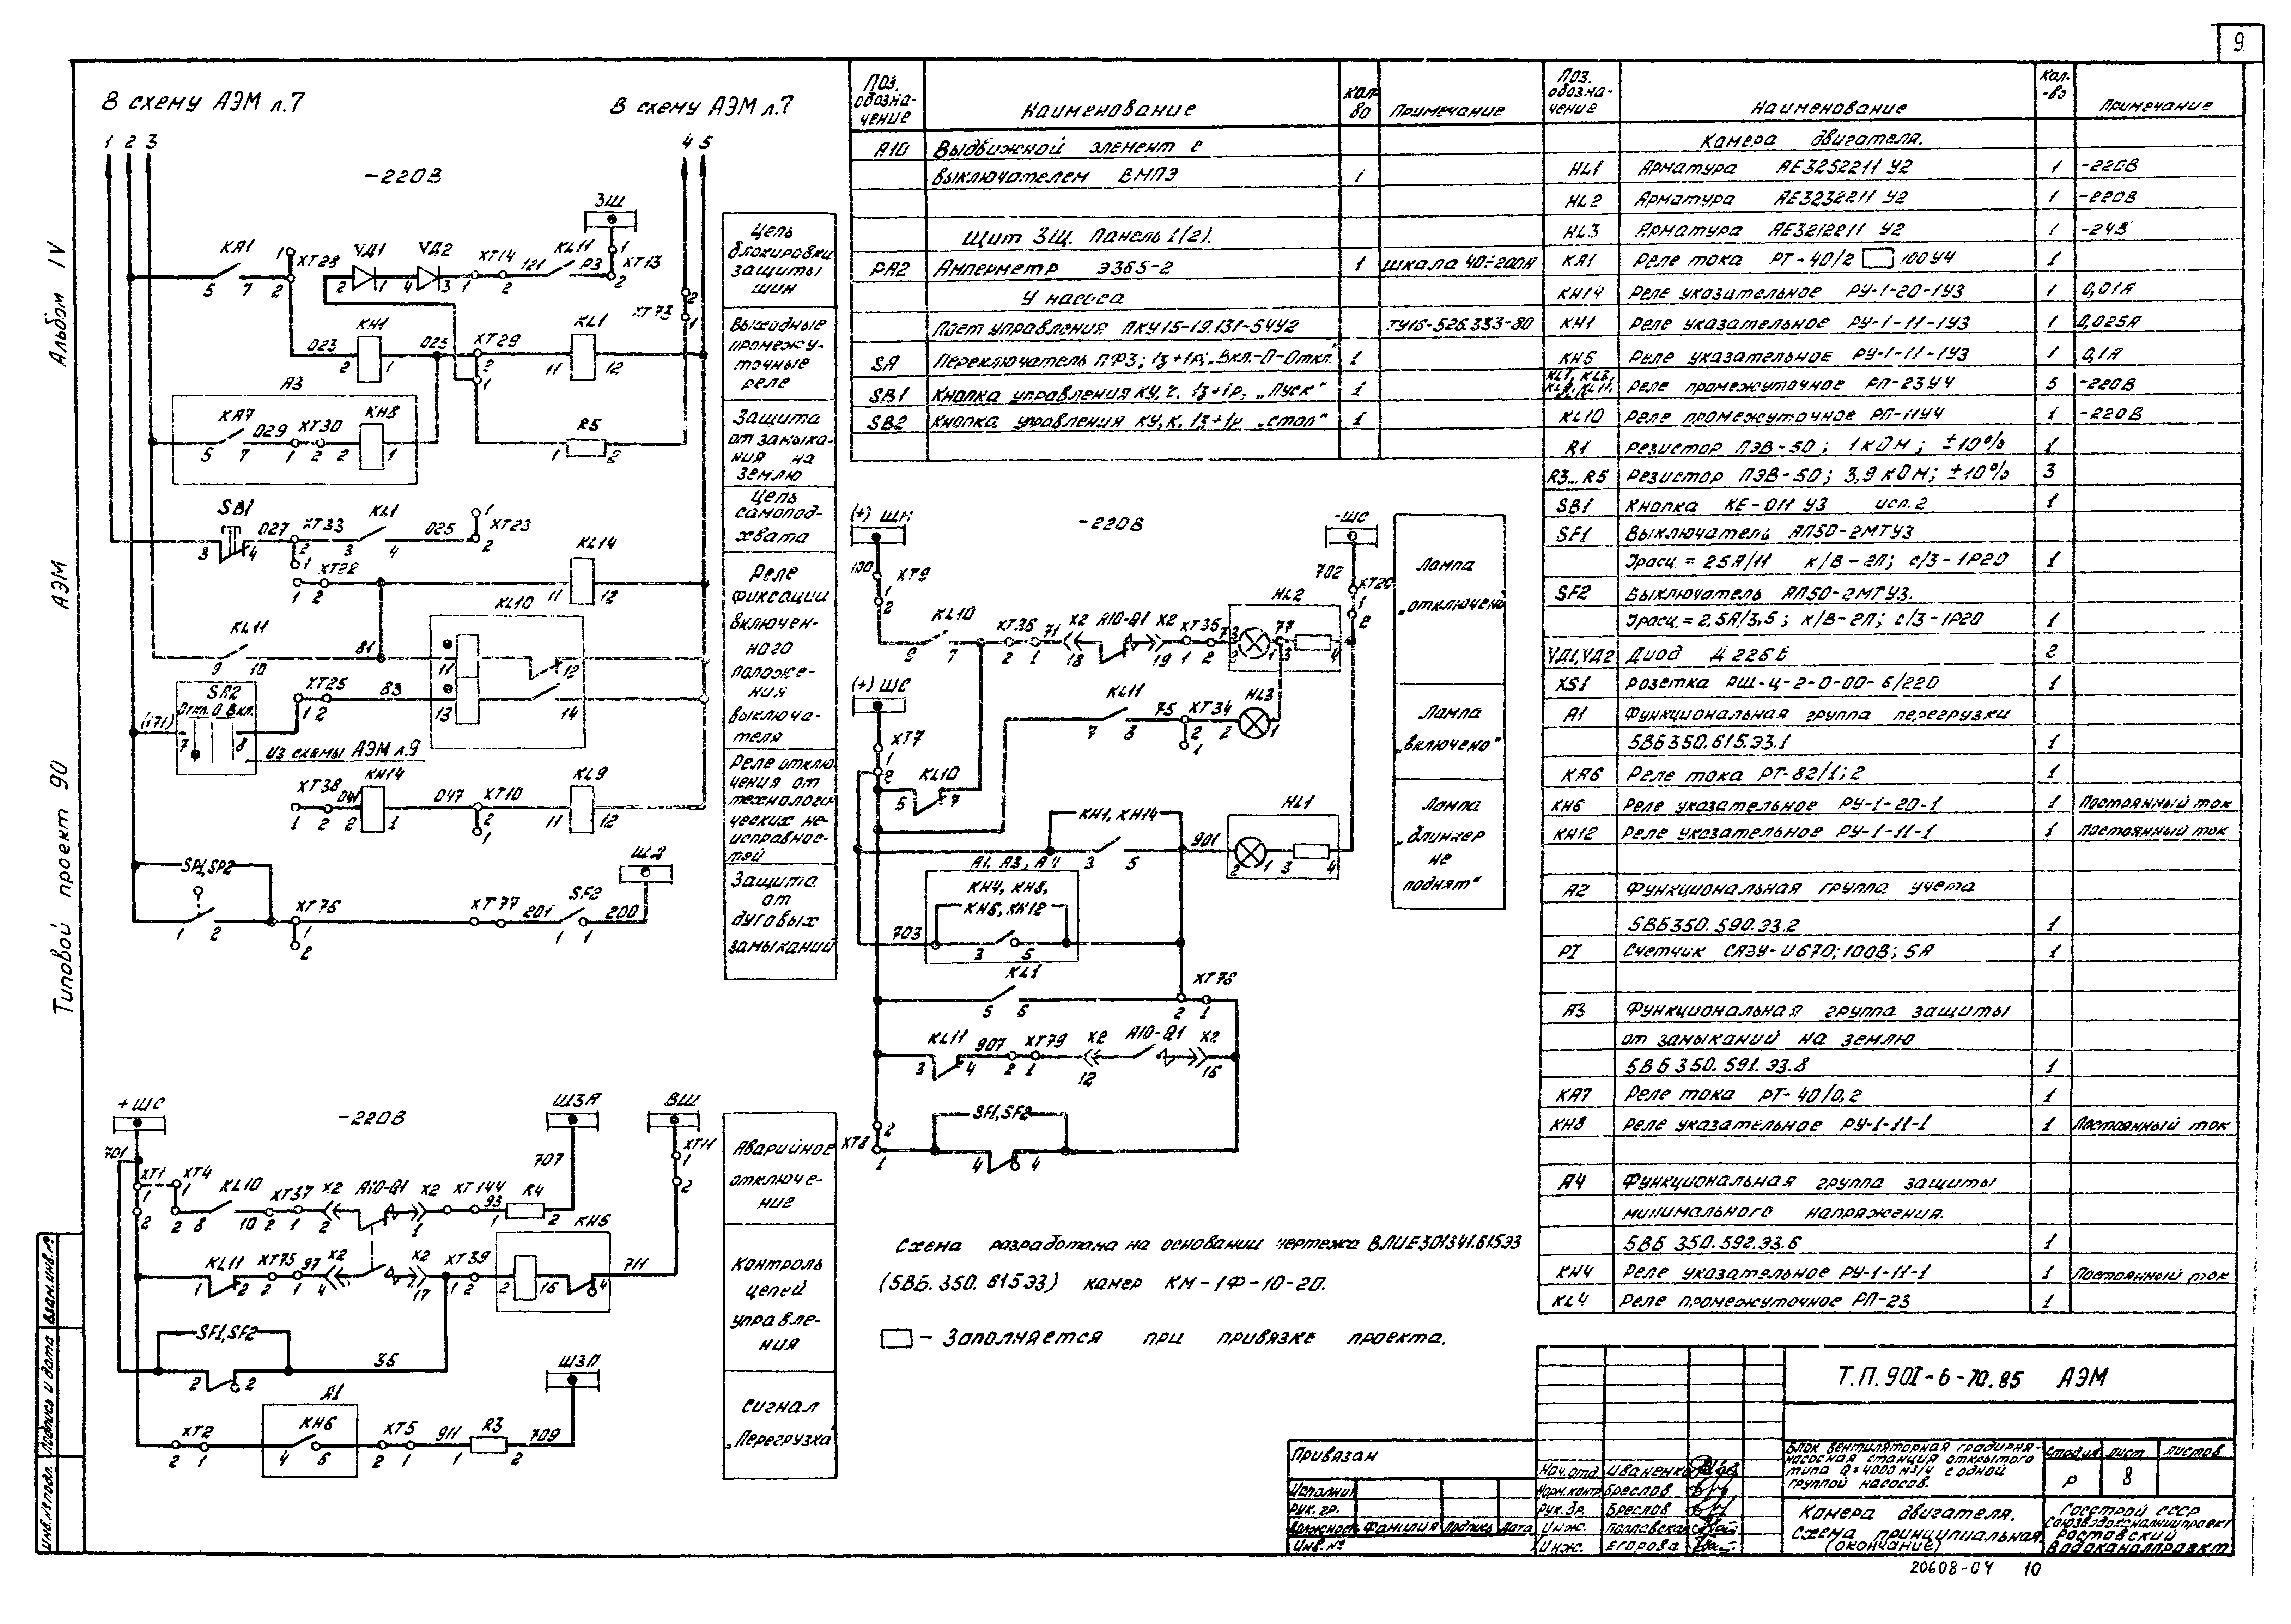 9
Альбом IV
АЭМ
Типовой проект 90
Взам.инв.№
Подпись и дата
Инв.№подл.
В схему АЭМ л.7
В схему АЭМ л.7
1 2 3
4 5
-220В
ЗШ
КА1 ХТ28 VД1 VД2 ХТ14 121 KL11 Р3 ХТ13
5 7 2 2 1 4 3 2 1 2
ХТ73
КН1 023 025 ХТ29 KL1
2 1 2 1 11 12
А3
КА7 029 ХТ30 КН8
5 7 1 2 2 1
R5
1 2
SB1 027 ХТ33 KL1 025 ХТ23
3 4 2 1 3 4 1 2
ХТ22 KL14
1 2 11 12
KL10
KL11 81
9 10 11 12
SA2 ХТ25 83
Откл. 0 Вкл.
(171) 7 8 1 2 13 14
Из схемы АЭМ л.9
ХТ38 041 КН14 047 ХТ10 KL9
1 2 2 1 2 1 11 12
ШД
SF1,SF2 ХТ76 ХТ77 201 SF2 200
1 2 1 2 1
Цепь
блокировки
защиты
шин
Выходные
промежу-
точные
реле
Защита
от замыка-
ния на
землю
Цепь
самопод-
хвата
Реле
фиксации
включен-
ного
положе-
ния
выключа-
теля
Реле отклю
чения от
технологи
ческих не-
исправнос-
тей
Защита
от
дуговых
замыканий
+ШС -220В ШЗА ВШ
701 707 ХТ11
ХТ1 ХТ4 KL10 ХТ37 Х2 А10-Q1 Х2 ХТ144 93 R4
1 2 1 2 8 10 2 1 2 1 1 2
КН5
KL11 ХТ75 97 Х2 Х2 ХТ39 711
1 2 2 1 4 17 1 2 2 16 4
SF1,SF2 35
2 2
ШЗП
А1
ХТ2 КН6 ХТ5 911 R3 709
2 1 4 6 2 1 1 2
Аварийное
отключе-
ние
Контроль
цепей
управле-
ния
Сигнал
„Перегрузка"
-220В
-ШС
100 ХТ9 702 ХТ20
HL2
KL10 ХТ36 71 Х2 А10-Q1 Х2 ХТ35 73 77
9 7 2 1 18 19 1 2 2 1 3 4
(+) ШС
KL11 75 ХТ34 HL3
7 8 2 1 2 1
ХТ7
KL10
5 7
КН1, КН14 901 HL1
3 5 2 1 3 4
А1, А3, А4
КН4, КН8,
КН6, КН12
703 3 5
KL1 ХТ78
5 6 2 1
KL11 907 ХТ79 Х2 А10-Q1 Х2
3 4 2 1 12 16
SF1,SF2
ХТ8 2 1 4 4
Лампа
„отключено
Лампа
„включено"
Лампа
„блинкер
не
поднят"
Схема разработана на основании чертежа ВЛИЕ301341.615Э3
(5ВБ.350.615Э3) камер КМ-1Ф-10-20.
- Заполняется при привязке проекта.
Поз. обозна-чение Наименование Кол-во Примечание
А10 Выдвижной элемент с
выключателем ВМПЭ 1
Щит ЗЩ. Панель 1(2).
РА2 Амперметр Э365-2 1 шкала 40÷200А
У насоса
Пост управления ПКУ15-19.131-54У2 ТУ16-526.333-80
SA Переключатель ПФЗ; 1з+1р; „Вкл.-0-Откл." 1
SB1 Кнопка управления КУ, ч. 1з+1р, „Пуск" 1
SB2 Кнопка управления КУ, к. 1з+1р „стоп" 1
Поз. обозна-чение Наименование Кол-во Примечание
Камера двигателя.
HL1 Арматура АЕ3252211 У2 1 -220В
HL2 Арматура АЕ3232211 У2 1 -220В
HL3 Арматура АЕ3212211 У2 1 -24В
КА1 Реле тока РТ-40/2 100У4 1
КН14 Реле указательное РУ-1-20-1У3 1 0,01А
КН1 Реле указательное РУ-1-11-1У3 1 0,025А
КН5 Реле указательное РУ-1-11-1У3 1 0,1А
KL1, KL3,
KL9, KL11, Реле промежуточное РП-23У4 5 -220В
KL10 Реле промежуточное РП-11У4 1 -220В
R1 Резистор ПЭВ-50; 1 кОм; ±10% 1
R3...R5 Резистор ПЭВ-50; 3,9 кОм; ±10% 3
SB1 Кнопка КЕ-011 У3 исп.2 1
SF1 Выключатель АП50-2МТУ3
Iрасц.=25А/11 к/в-2П; с/з-1Р20 1
SF2 Выключатель АП50-2МТУ3.
Iрасц.=2,5А/3,5; к/в-2П; с/з-1Р20 1
VД1,VД2 Диод Д226Б 2
XS1 розетка РШ-Ц-2-0-00-6/220 1
А1 Функциональная группа перегрузки
5ВБ350.615.Э3.1 1
КА6 Реле тока РТ-82/1; 2 1
КН6 Реле указательное РУ-1-20-1 1 Постоянный ток
КН12 Реле указательное РУ-1-11-1 1 Постоянный ток
А2 Функциональная группа учета
5ВБ350.590.Э3.2 1
PI Счетчик САЗУ-И670; 100В; 5А 1
А3 Функциональная группа защиты
от замыканий на землю
5ВБ350.591.Э3.8 1
КА7 Реле тока РТ-40/0,2 1
КН8 Реле указательное РУ-1-11-1 1 Постоянный ток
А4 Функциональная группа защиты
минимального напряжения.
5ВБ 350.592.Э3.6 1
КН4 Реле указательное РУ-1-11-1 1 Постоянный ток
KL4 Реле промежуточное РП-23 1
Т.П.901-6-70.85 АЭМ
Привязан
Исполнит
Рук. гр.
Должность Фамилия Подпись Дата
Инв.№
Нач.отд Иваненко
Норм.контр Бреслов
Рук.бр. Бреслов
Инж.
Инж. Егорова
Блок вентиляторная градирня-
насосная станция открытого
типа Q=4000 м3/ч с одной
группой насосов.
Стадия Лист Листов
Р 8
Камера двигателя.
Схема принципиальная
(окончание)
Госстрой СССР
Союзводоканалниипроект
Ростовский
Водоканалпроект
20608-04 10